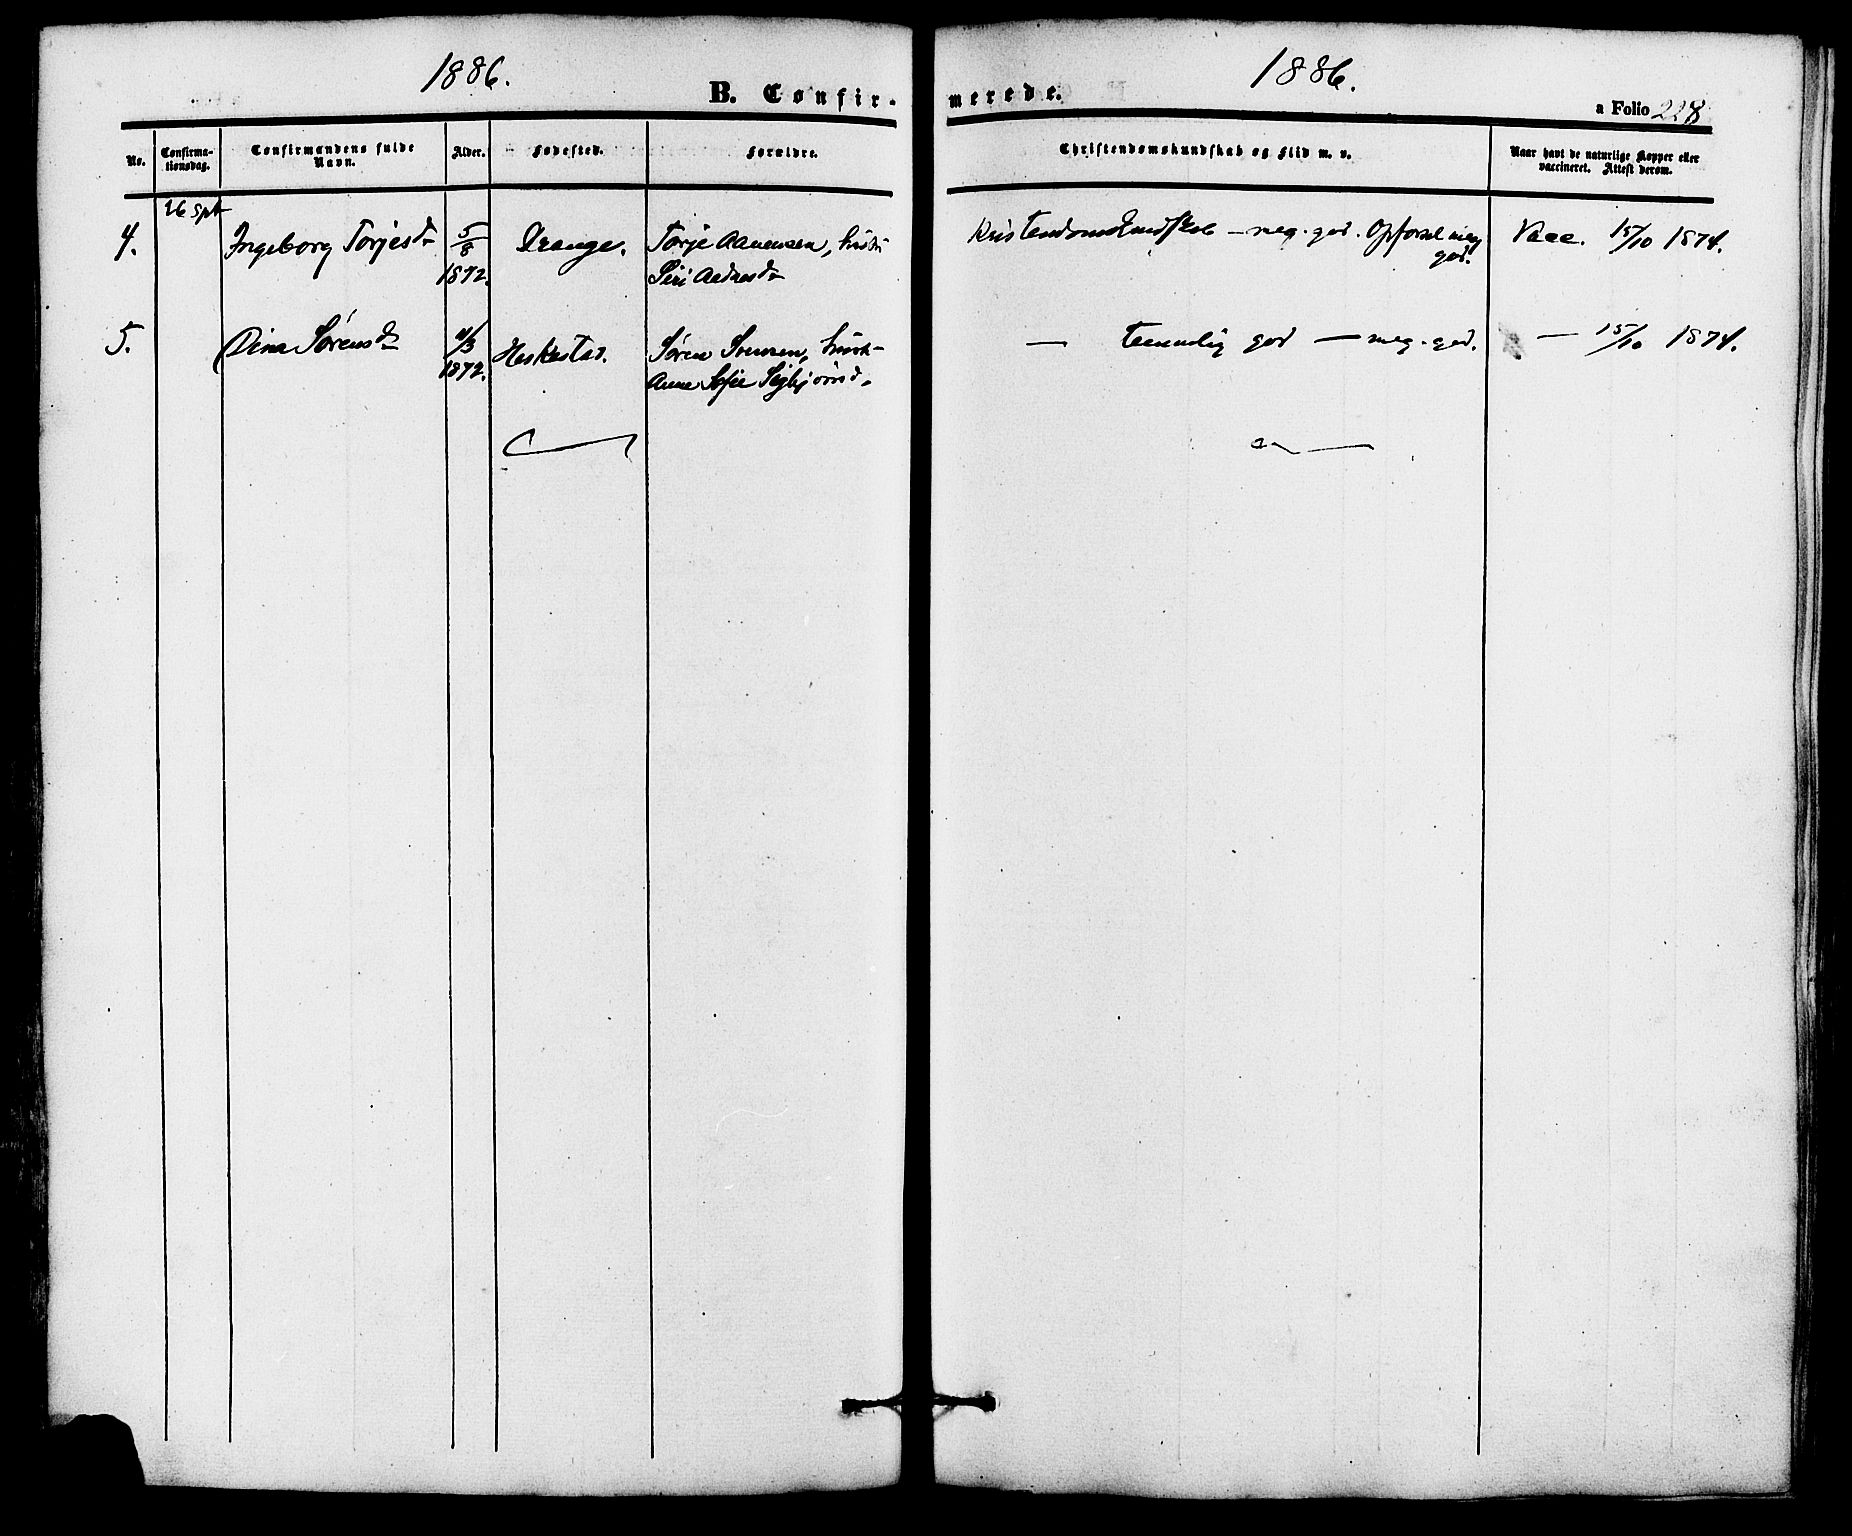 1886.
1886.
B. Confir-
merede.
a Folio 228
No.
Confirma-
tionsdag.
Confirmandens fulde
Navn.
Alder.
Fødested.
Forældre.
Christendomskundskab og Flid m. v.
Naar havt de naturlige Kopper eller
vaccineret. Attest derom.
26 Spt
4. Ingeborg Torjesd 5/8 Drange. Torje Aanensen, Kristendomskundskab - meg. god. Opførsel meg Vacc. 15/10 1874.
1872. Siri god.
5. Dina Sørensd 4/3 Heskestad. Søren Svensen, — temmelig god — meg. god. — 15/10 1874.
1872. Anne Sofie Sigbjørnsd.